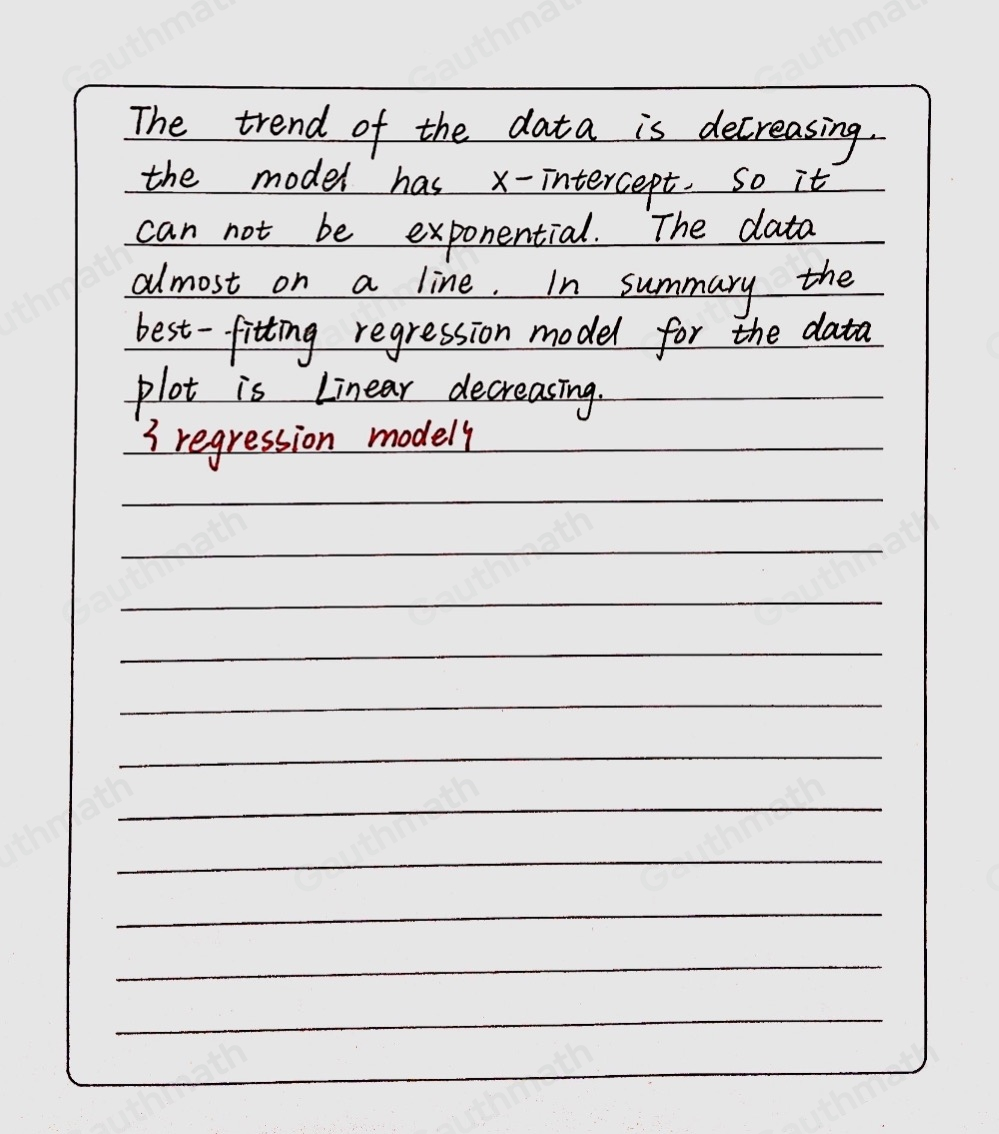 The trend of the data is decreasing.
the model has x-intercept. So it
can not be exponential. The data
almost on a line. In summary the
best-fitting regression model for the data
plot is Linear decreasing.
{ regression model}